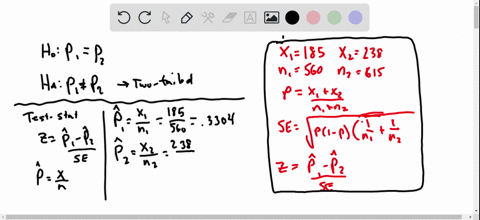 H₀: P₁ = P₂
Hᴀ: P₁ ≠ P₂ → Two-tailed
Test-stat
Z = P̂₁ - P̂₂ / SE
P̂ = X / n
P̂₁ = X₁ / n₁ = 185 / 560 = .3304
P̂₂ = X₂ / n₂ = 238
X₁ = 185 X₂ = 238
n₁ = 560 n₂ = 615
P = X₁ + X₂ / n₁ + n₂
SE = √P(1-P)(1/n₁ + 1/n₂)
Z = P̂₁ - P̂₂ / SE